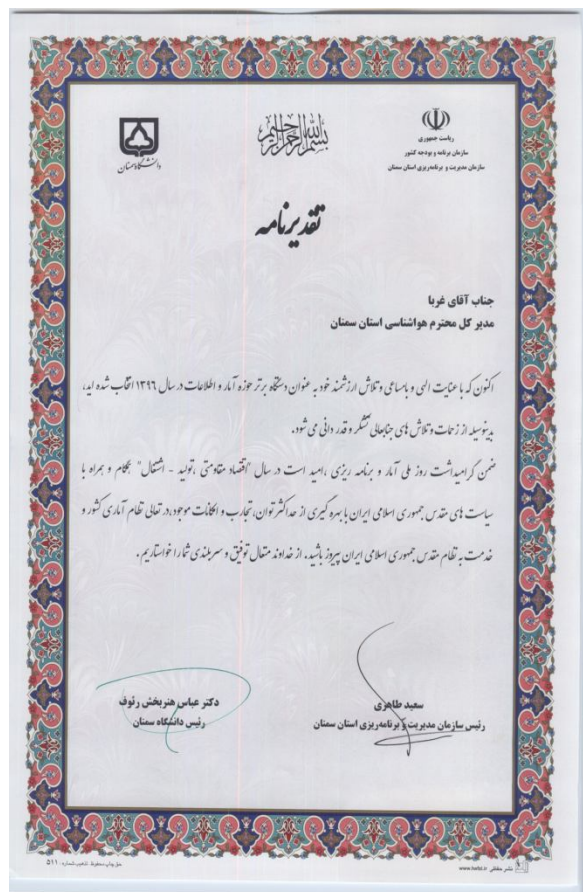 ریاست جمهوری
سازمان برنامه و بودجه کشور
سازمان مدیریت و برنامه‌ریزی استان سمنان
بسم الله الرحمن الرحیم
دانشگاه سمنان
تقدیرنامه
جناب آقای غربا
مدیر کل محترم هواشناسی استان سمنان
اکنون که با عنایت الهی و بامساعی و تلاش ارزشمند خود به عنوان دستگاه برتر حوزه آمار و اطلاعات در سال ۱۳۹۶ انتخاب شده اید،
بدینوسیله از زحمات و تلاش های جنابعالی تشکر و قدر دانی می شود.
ضمن گرامیداشت روز ملی آمار و برنامه ریزی ،امید است در سال "اقتصاد مقاومتی ،تولید - اشتغال" همگام و همراه با
سیاست های مقدس جمهوری اسلامی ایران با بهره گیری از حداکثر توان، تجارب و امکانات موجود،در تعالی نظام آماری کشور و
خدمت به نظام مقدس جمهوری اسلامی ایران پیروز باشید. از خداوند متعال توفیق و سربلندی شما را خواستاریم.
سعید طاهری
رئیس سازمان مدیریت و برنامه‌ریزی استان سمنان
دکتر عباس هنربخش رئوف
رئیس دانشگاه سمنان
نشر حقانی www.hefbt.ir
حق چاپ محفوظ تذهیب شماره: ۵۱۱